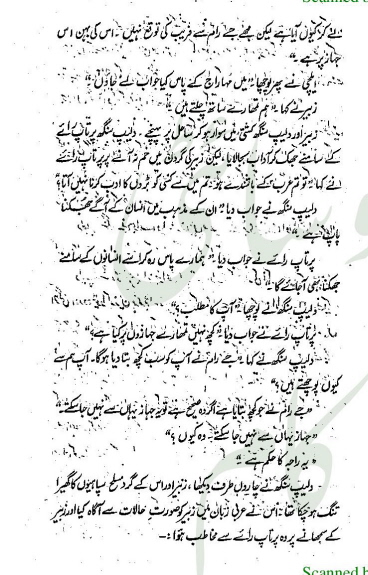 Scanned b
لے کر کیوں آیا ہے لیکن مجھے جے رام سے فریب کی توقع نہیں۔ اس کی بہن اس
جہاز پر ہے۔"
ایلچی نے پھر پوچھا "میں مہاراج کے پاس کیا جواب لے جاؤں؟"
زبیر نے کہا "ہم تمھارے ساتھ چلتے ہیں"
زبیر اور دلیپ سنگھ کشتی میں سوار ہو کر ساحل پر پہنچے۔ دلیپ سنگھ پرتاپ رائے
کے سامنے جھک کر آداب بجا لایا لیکن زبیر کی گردن میں خم نہ آنے پر پرتاپ رائے
نے کہا "تو تم عرب کے باشندے ہو۔ تم میں سے کسی کو بڑوں کا ادب کرنا نہیں آتا؟"
دلیپ سنگھ نے جواب دیا "ان کے مذہب میں انسان کے آگے جھکنا
پاپ ہے۔"
پرتاپ رائے نے جواب دیا "ہمارے پاس رہ کر اسے انسانوں کے سامنے
جھکنا بھی آ جائے گا۔"
دلیپ سنگھ نے پوچھا "آپ کا مطلب؟"
پرتاپ رائے نے جواب دیا "کچھ نہیں تمھارے جہازوں پر کیا ہے؟"
دلیپ سنگھ نے کہا "جے رام نے آپ کو سب کچھ بتا دیا ہوگا۔ آپ ہم سے
کیوں پوچھتے ہیں؟"
"جے رام نے جو کچھ بتایا ہے اگر وہ صحیح ہے تو یہ جہاز یہاں سے نہیں جا سکتے۔"
"جہاز یہاں سے نہیں جا سکتے۔ وہ کیوں؟"
"یہ راجہ کا حکم ہے۔"
دلیپ سنگھ نے چاروں طرف دیکھا، زبیر اور اس کے گرد مسلح سپاہیوں کا گھیرا
تنگ ہو چکا تھا۔ اس نے عربی زبان میں زبیر کو صورتِ حالات سے آگاہ کیا اور زبیر
کے سمجھانے پر وہ پرتاپ رائے سے مخاطب ہوا:۔
Scanned b